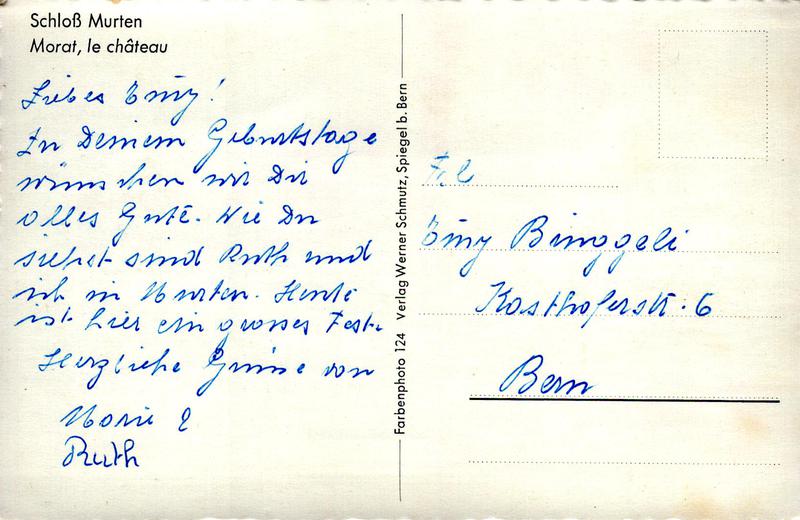 Schloß Murten
Morat, le château
Liebes Emy!
Zu Deinem Geburtstage
wünschen wir Dir
alles Gute. Wie Du
siehst sind Ruth und
ich in Murten. Heute
ist hier ein grosses Fest.
Herzliche Grüsse von
&
Ruth
Farbenphoto 124 Verlag Werner Schmutz, Spiegel b. Bern
Frl
Emy Binggeli
Kasthoferstr. 6
Bern